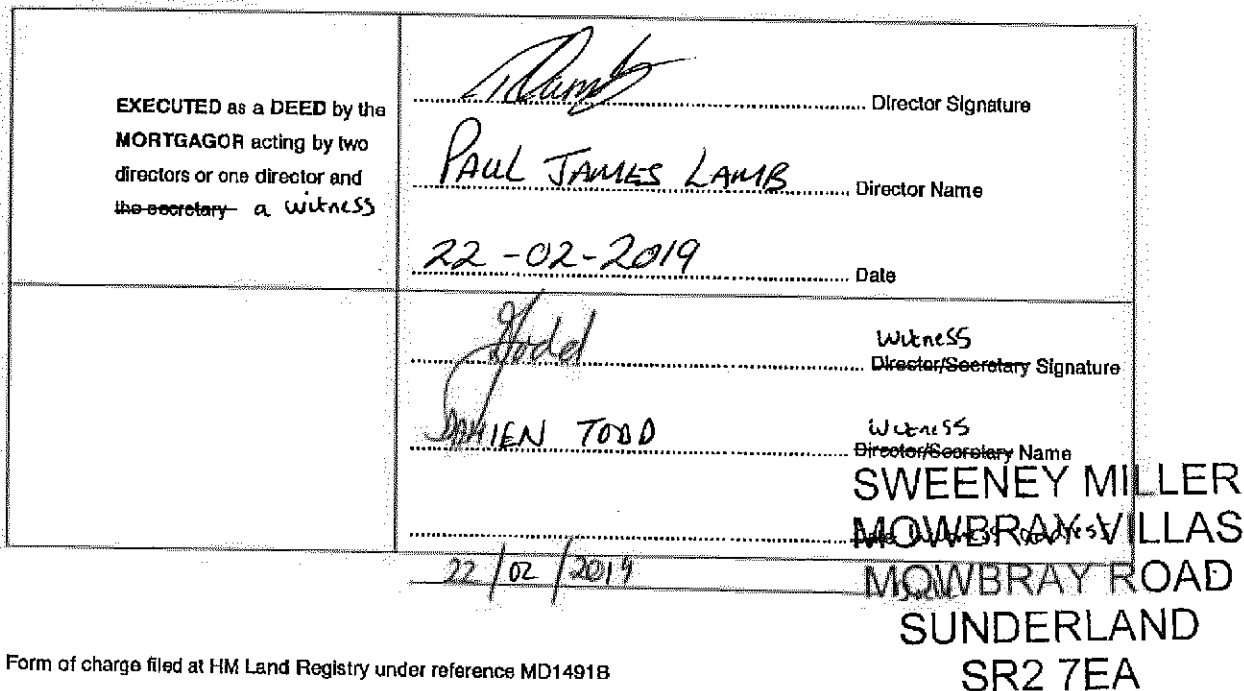 EXECUTED as a DEED by the
MORTGAGOR acting by two
directors or one director and
the secretary a witness
Director Signature
PAUL JAMES LAMB Director Name
22-02-2019 Date
witness
Director/Secretary Signature
DAMIEN TODD
witness
Director/Secretary Name
22/02/2019
SWEENEY MILLER
MOWBRAY VILLAS
MOWBRAY ROAD
SUNDERLAND
SR2 7EA
Form of charge filed at HM Land Registry under reference MD1491B